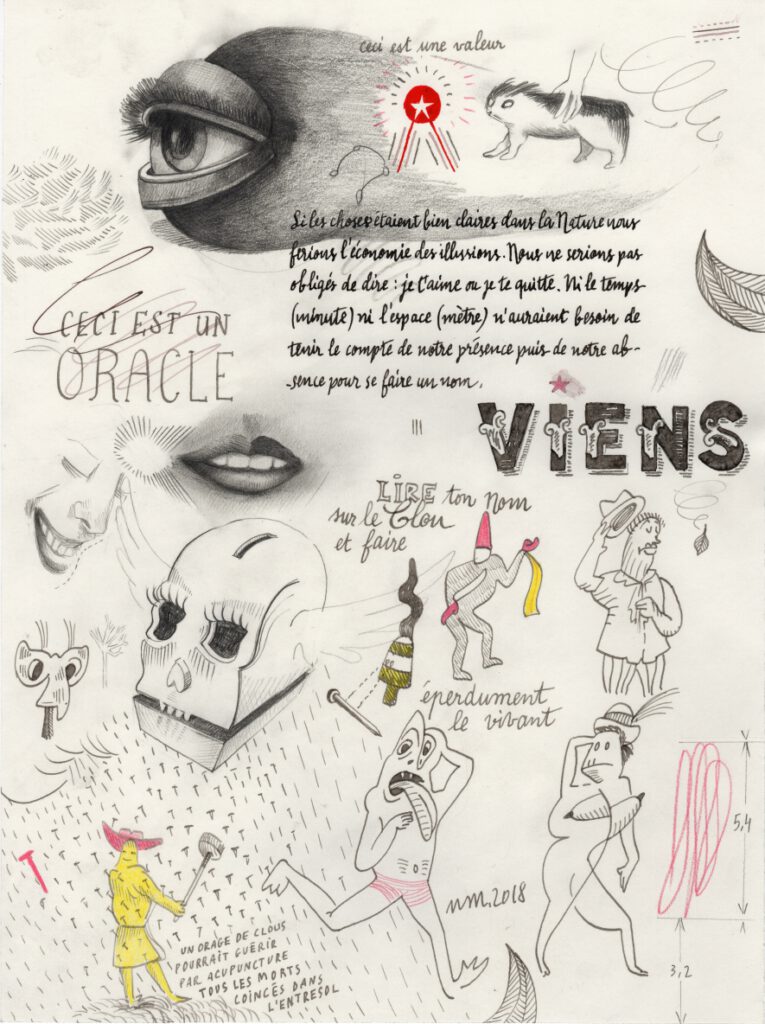 ceci est une valeur
Si les choses étaient bien claires dans la Nature nous
ferions l'économie des illusions. Nous ne serions pas
obligés de dire : je t'aime ou je te quitte. Ni le temps
(minute) ni l'espace (mètre) n'auraient besoin de
tenir le compte de notre présence puis de notre ab-
-sence pour se faire un nom.
CECI EST UN
ORACLE
VIENS
LIRE ton nom
sur le Clou
et faire
éperdument
le vivant
5,4
nm.2018
UN ORAGE DE CLOUS
POURRAIT GUÉRIR
PAR ACUPUNCTURE
TOUS LES MORTS
COINCÉS DANS
L'ENTRESOL
3,2